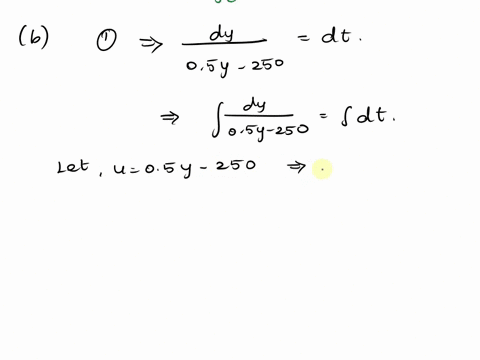 (b) ① ⇒ dy/(0.5y-250) = dt.
⇒ ∫ dy/(0.5y-250) = ∫ dt.
Let, u = 0.5y - 250 ⇒